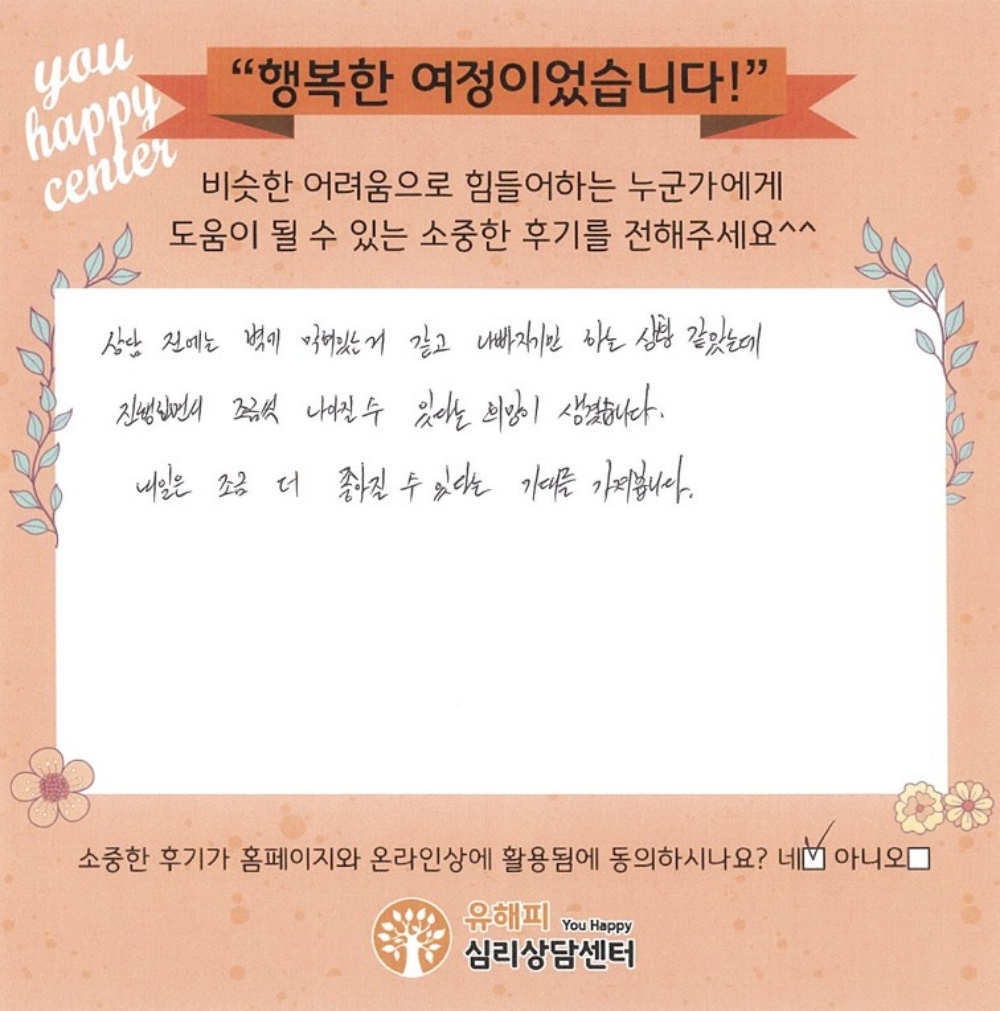 you
happy
center
“행복한 여정이었습니다!”
비슷한 어려움으로 힘들어하는 누군가에게
도움이 될 수 있는 소중한 후기를 전해주세요^^
상담 전에는 벽에 막혀있는거 같고 나빠지기만 하는 상황 같았는데
진행되면서 조금씩 나아질 수 있다는 희망이 생겼습니다.
내일은 조금 더 좋아질 수 있다는 기대를 가져봅니다.
소중한 후기가 홈페이지와 온라인상에 활용됨에 동의하시나요? 네 아니오
유해피 You Happy
심리상담센터